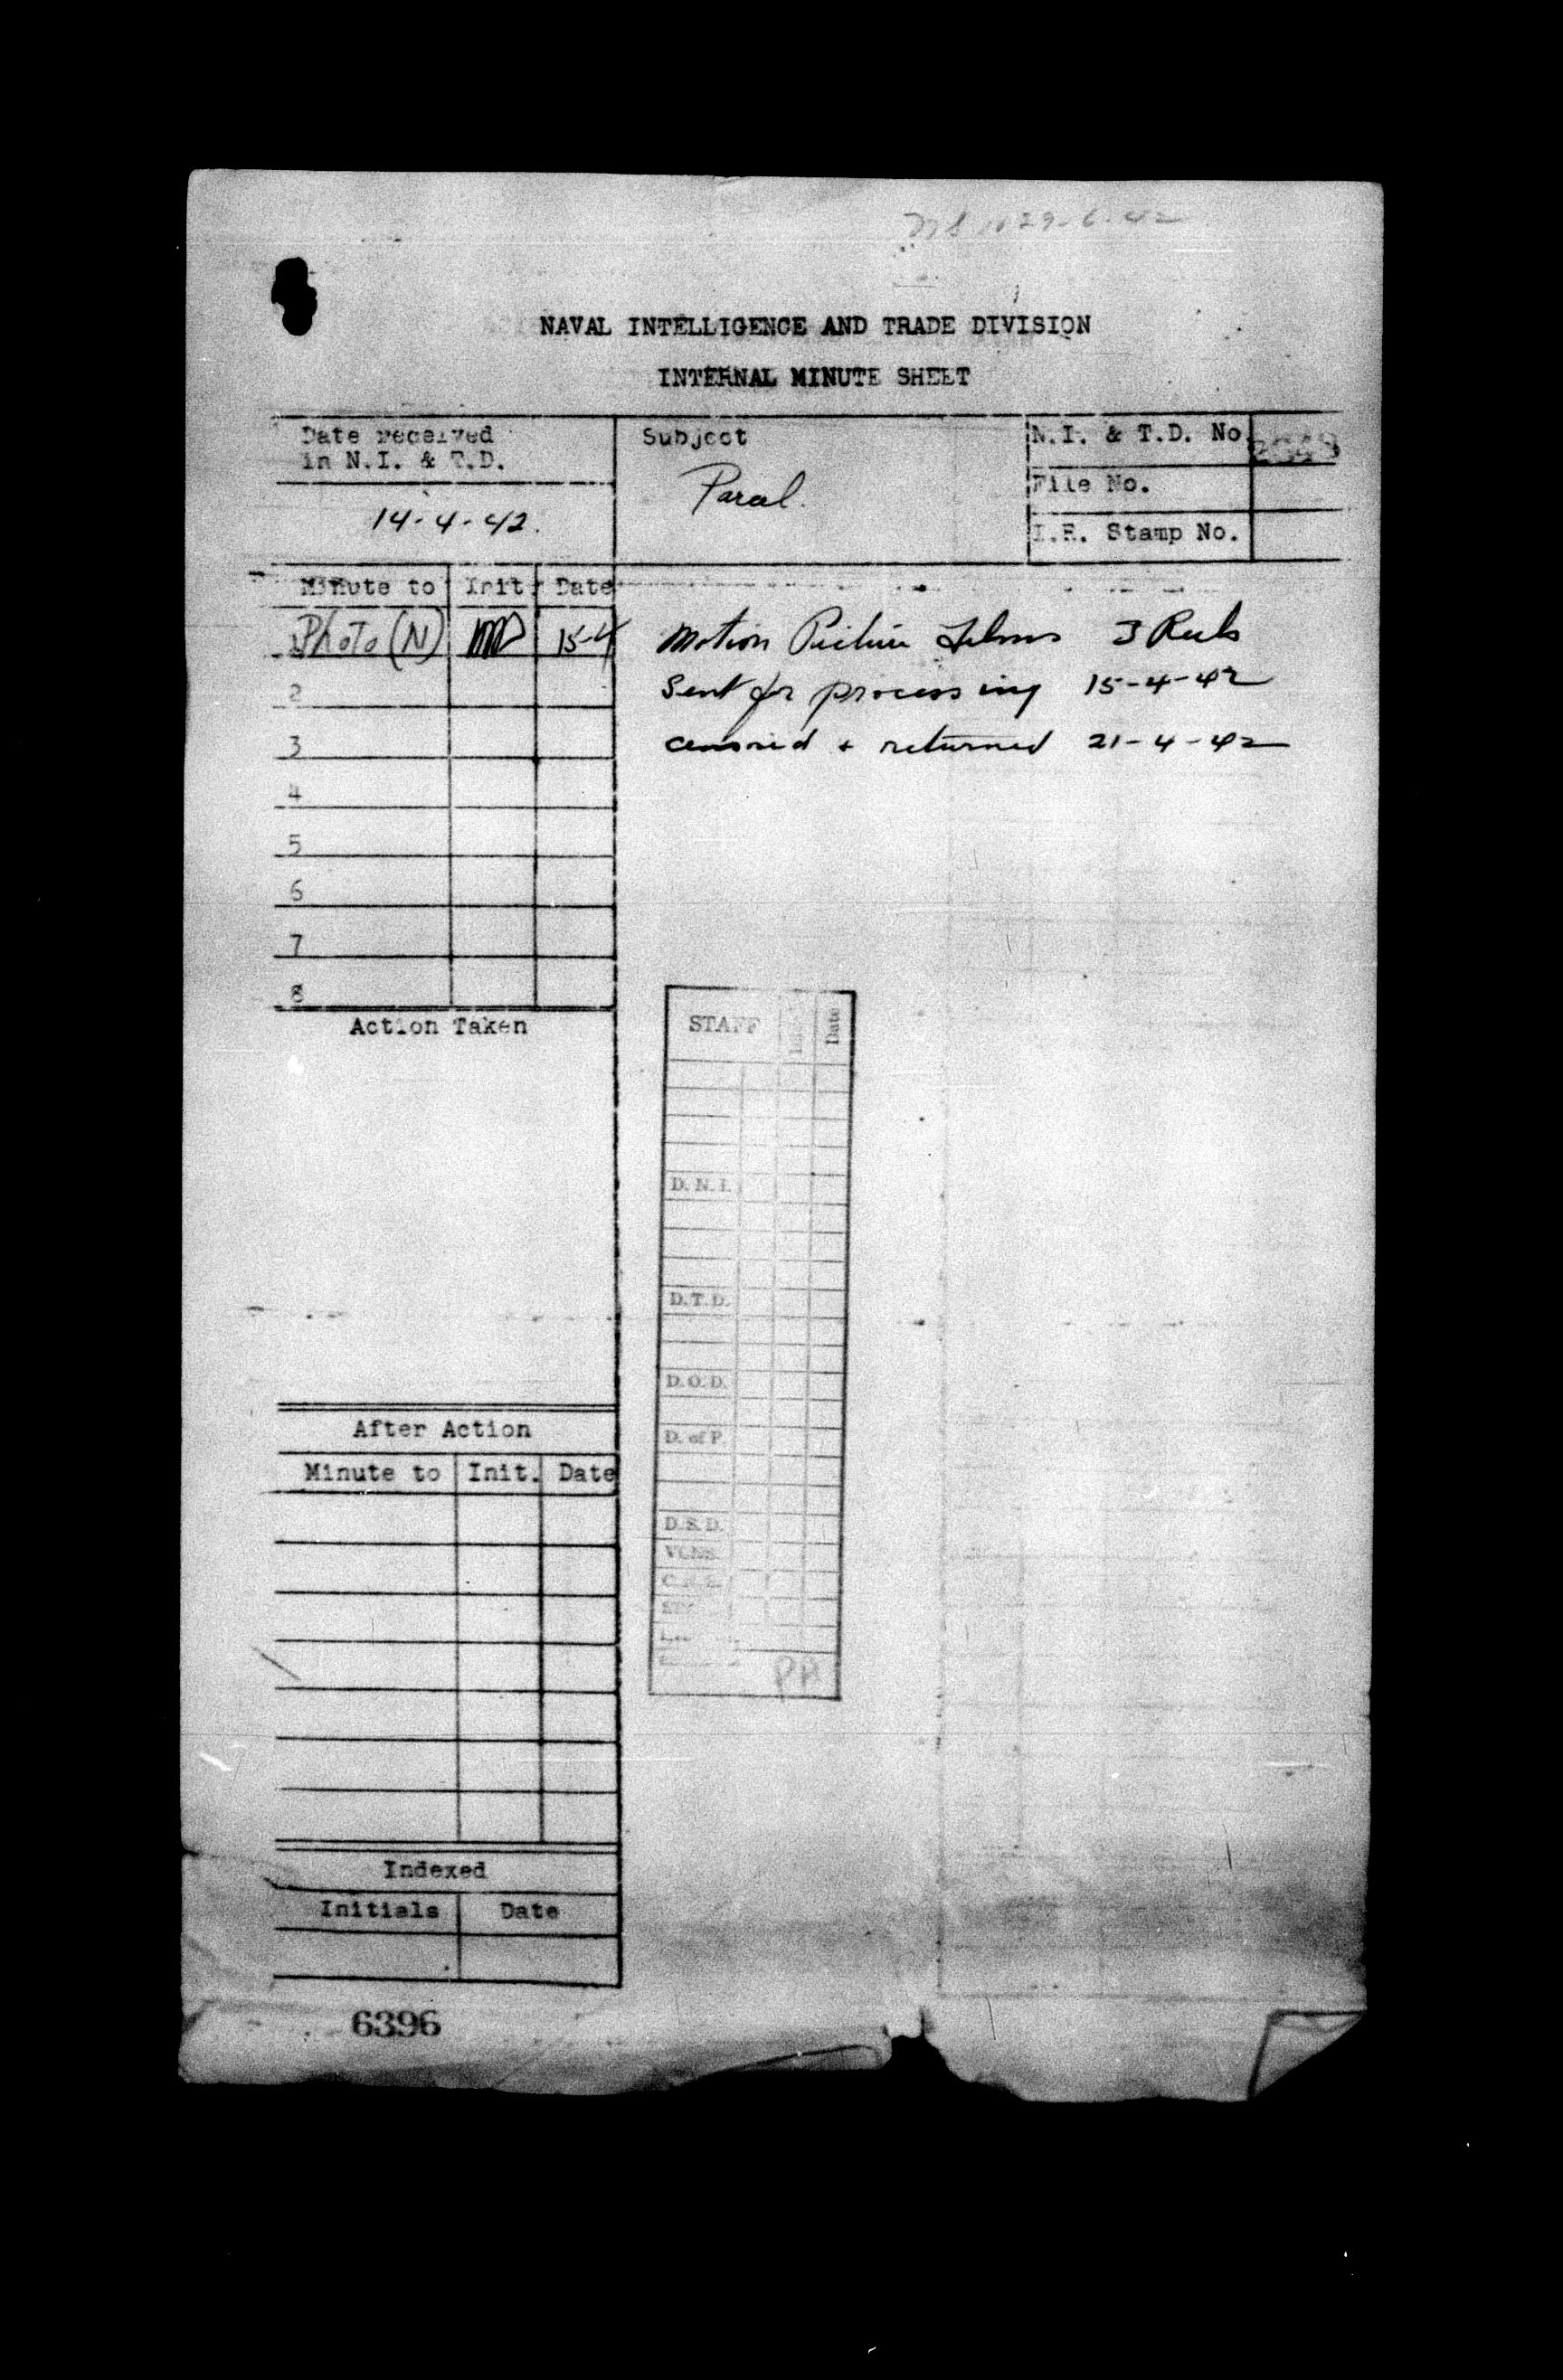 29-6-42
NAVAL INTELLIGENCE AND TRADE DIVISION
INTERNAL MINUTE SHEET
Date received
in N.I. & T.D.
14-4-42.
Subject
Parcel.
N.I. & T.D. No.
File No.
I.R. Stamp No.
Minute to Init. Date
Photo (N) 15-4
2
3
4
5
6
7
8
Motion Picture Films 3 Reels
Sent for processing 15-4-42
censored + returned 21-4-42
Action Taken
STAFF Date
D.N.I.
D.T.D.
D.O.D.
D. of P.
D.S.D.
After Action
Minute to Init. Date
Indexed
Initials Date
6396